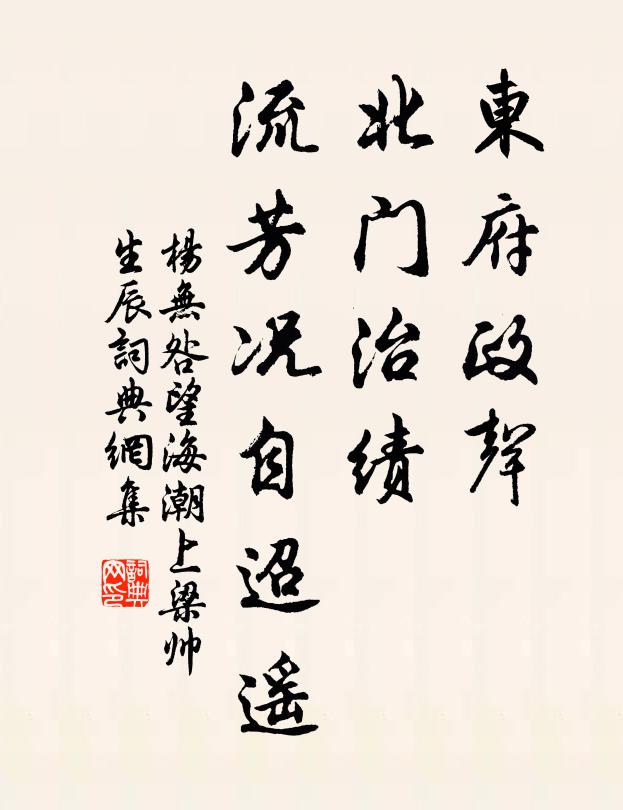 東府政聲
北门治绩
流芳况自迢遥
楊無咎望海潮上梁帅
生辰詞典網集
詞典网印